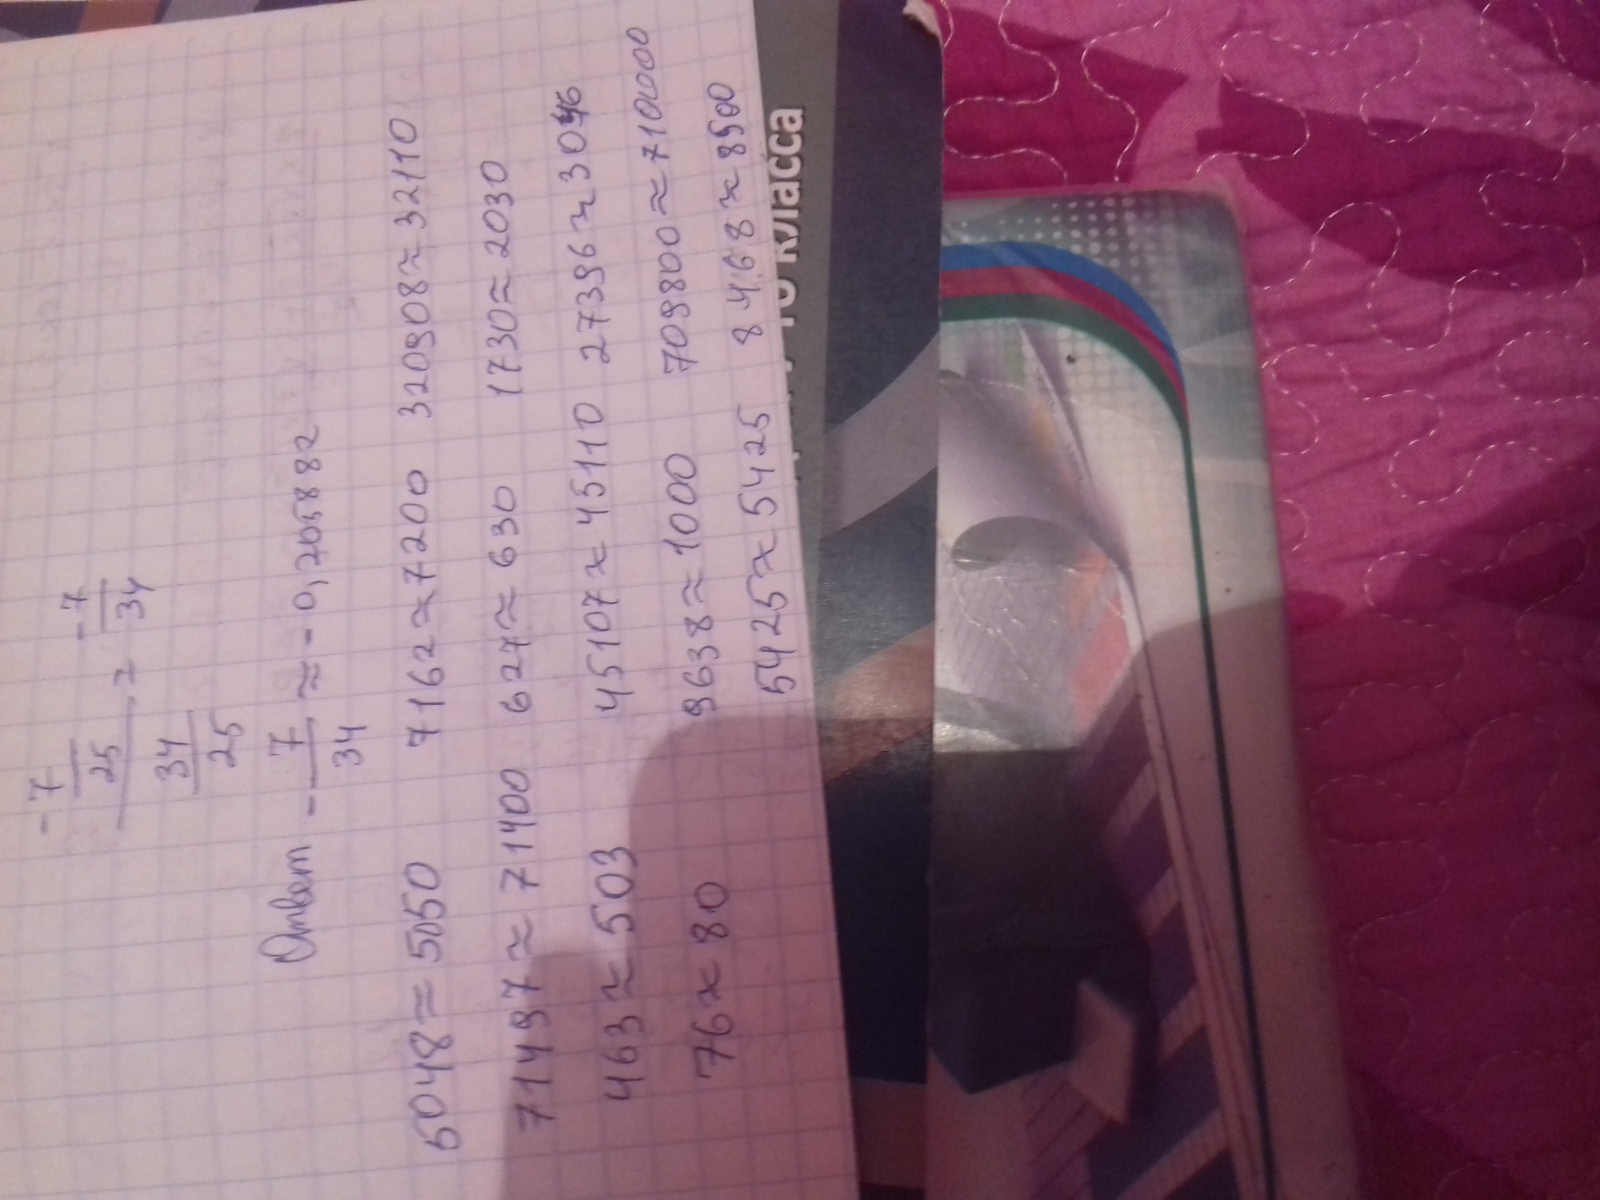 -7/25 / 34/25 = -7/34
Ответ -7/34 ≈ -0,205882
5048≈5050 7162≈7200 320908≈32110
71497≈71400 627≈630 1730≈2030
463≈503 45107≈45110 27396≈30
76≈80 9638≈1000 709800≈710000
5425≈5425 8468≈8500
10 класса